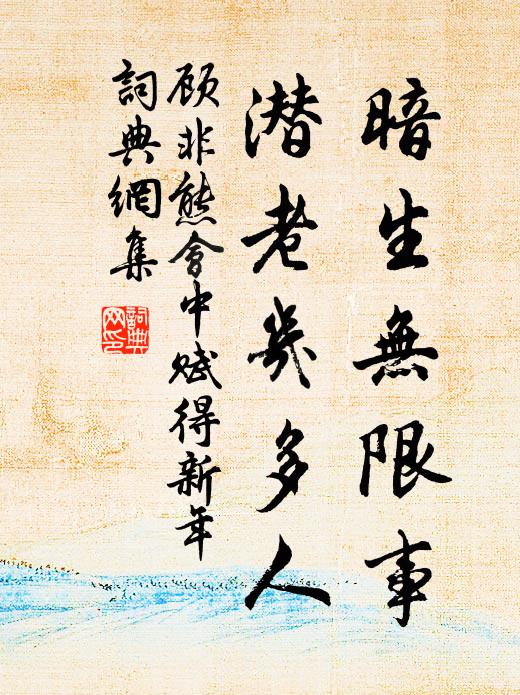 暗生無限事
潜老幾多人
顾非熊會中赋得新年
詞典網集
詞典网印